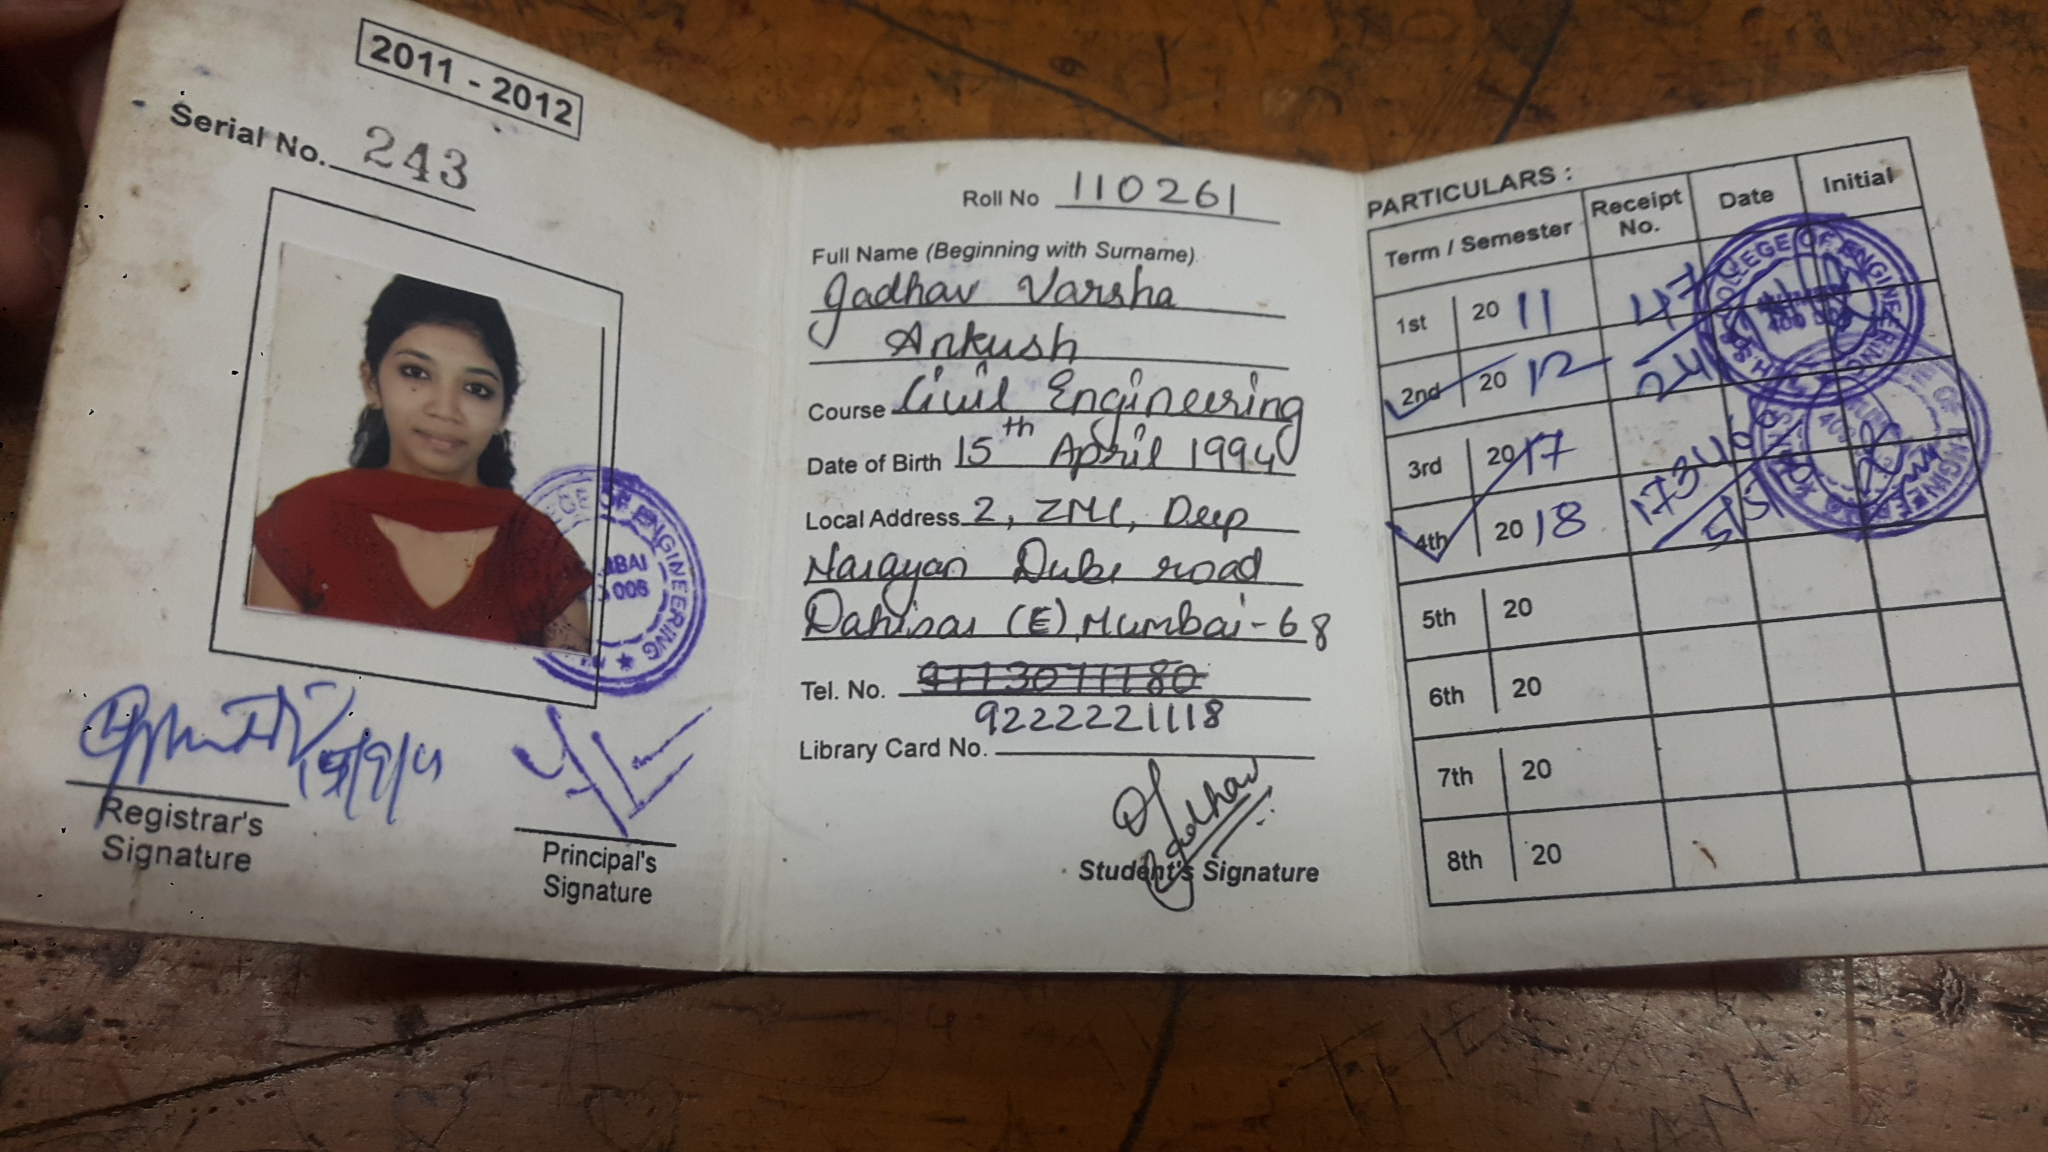 2011 - 2012
Serial No. 243
COLLEGE OF ENGINEERING
Registrar's
Signature
Principal's
Signature
Roll No 110261
Full Name (Beginning with Surname).
Gadhav Varsha
Ankush
Course Civil Engineering
Date of Birth 15th April 1994
Local Address 2, ZMC, Deep
Narayan Dube road
Dahisar (E), Mumbai-68
Tel. No.
9222221118
Library Card No.
Student's Signature
PARTICULARS :
Term / Semester Receipt No. Date Initial
1st 20 11
2nd 20 12
3rd 20 17
4th 20 18
5th 20
6th 20
7th 20
8th 20
COLLEGE OF ENGINEERING